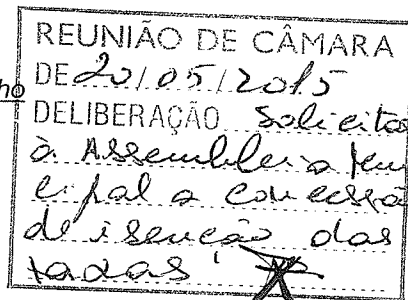 REUNIÃO DE CÂMARA
DE 20/05/2015
ho
DELIBERAÇÃO Solicitar
à Assembleia Mun
cipal a concessã
de isenção das
taxas